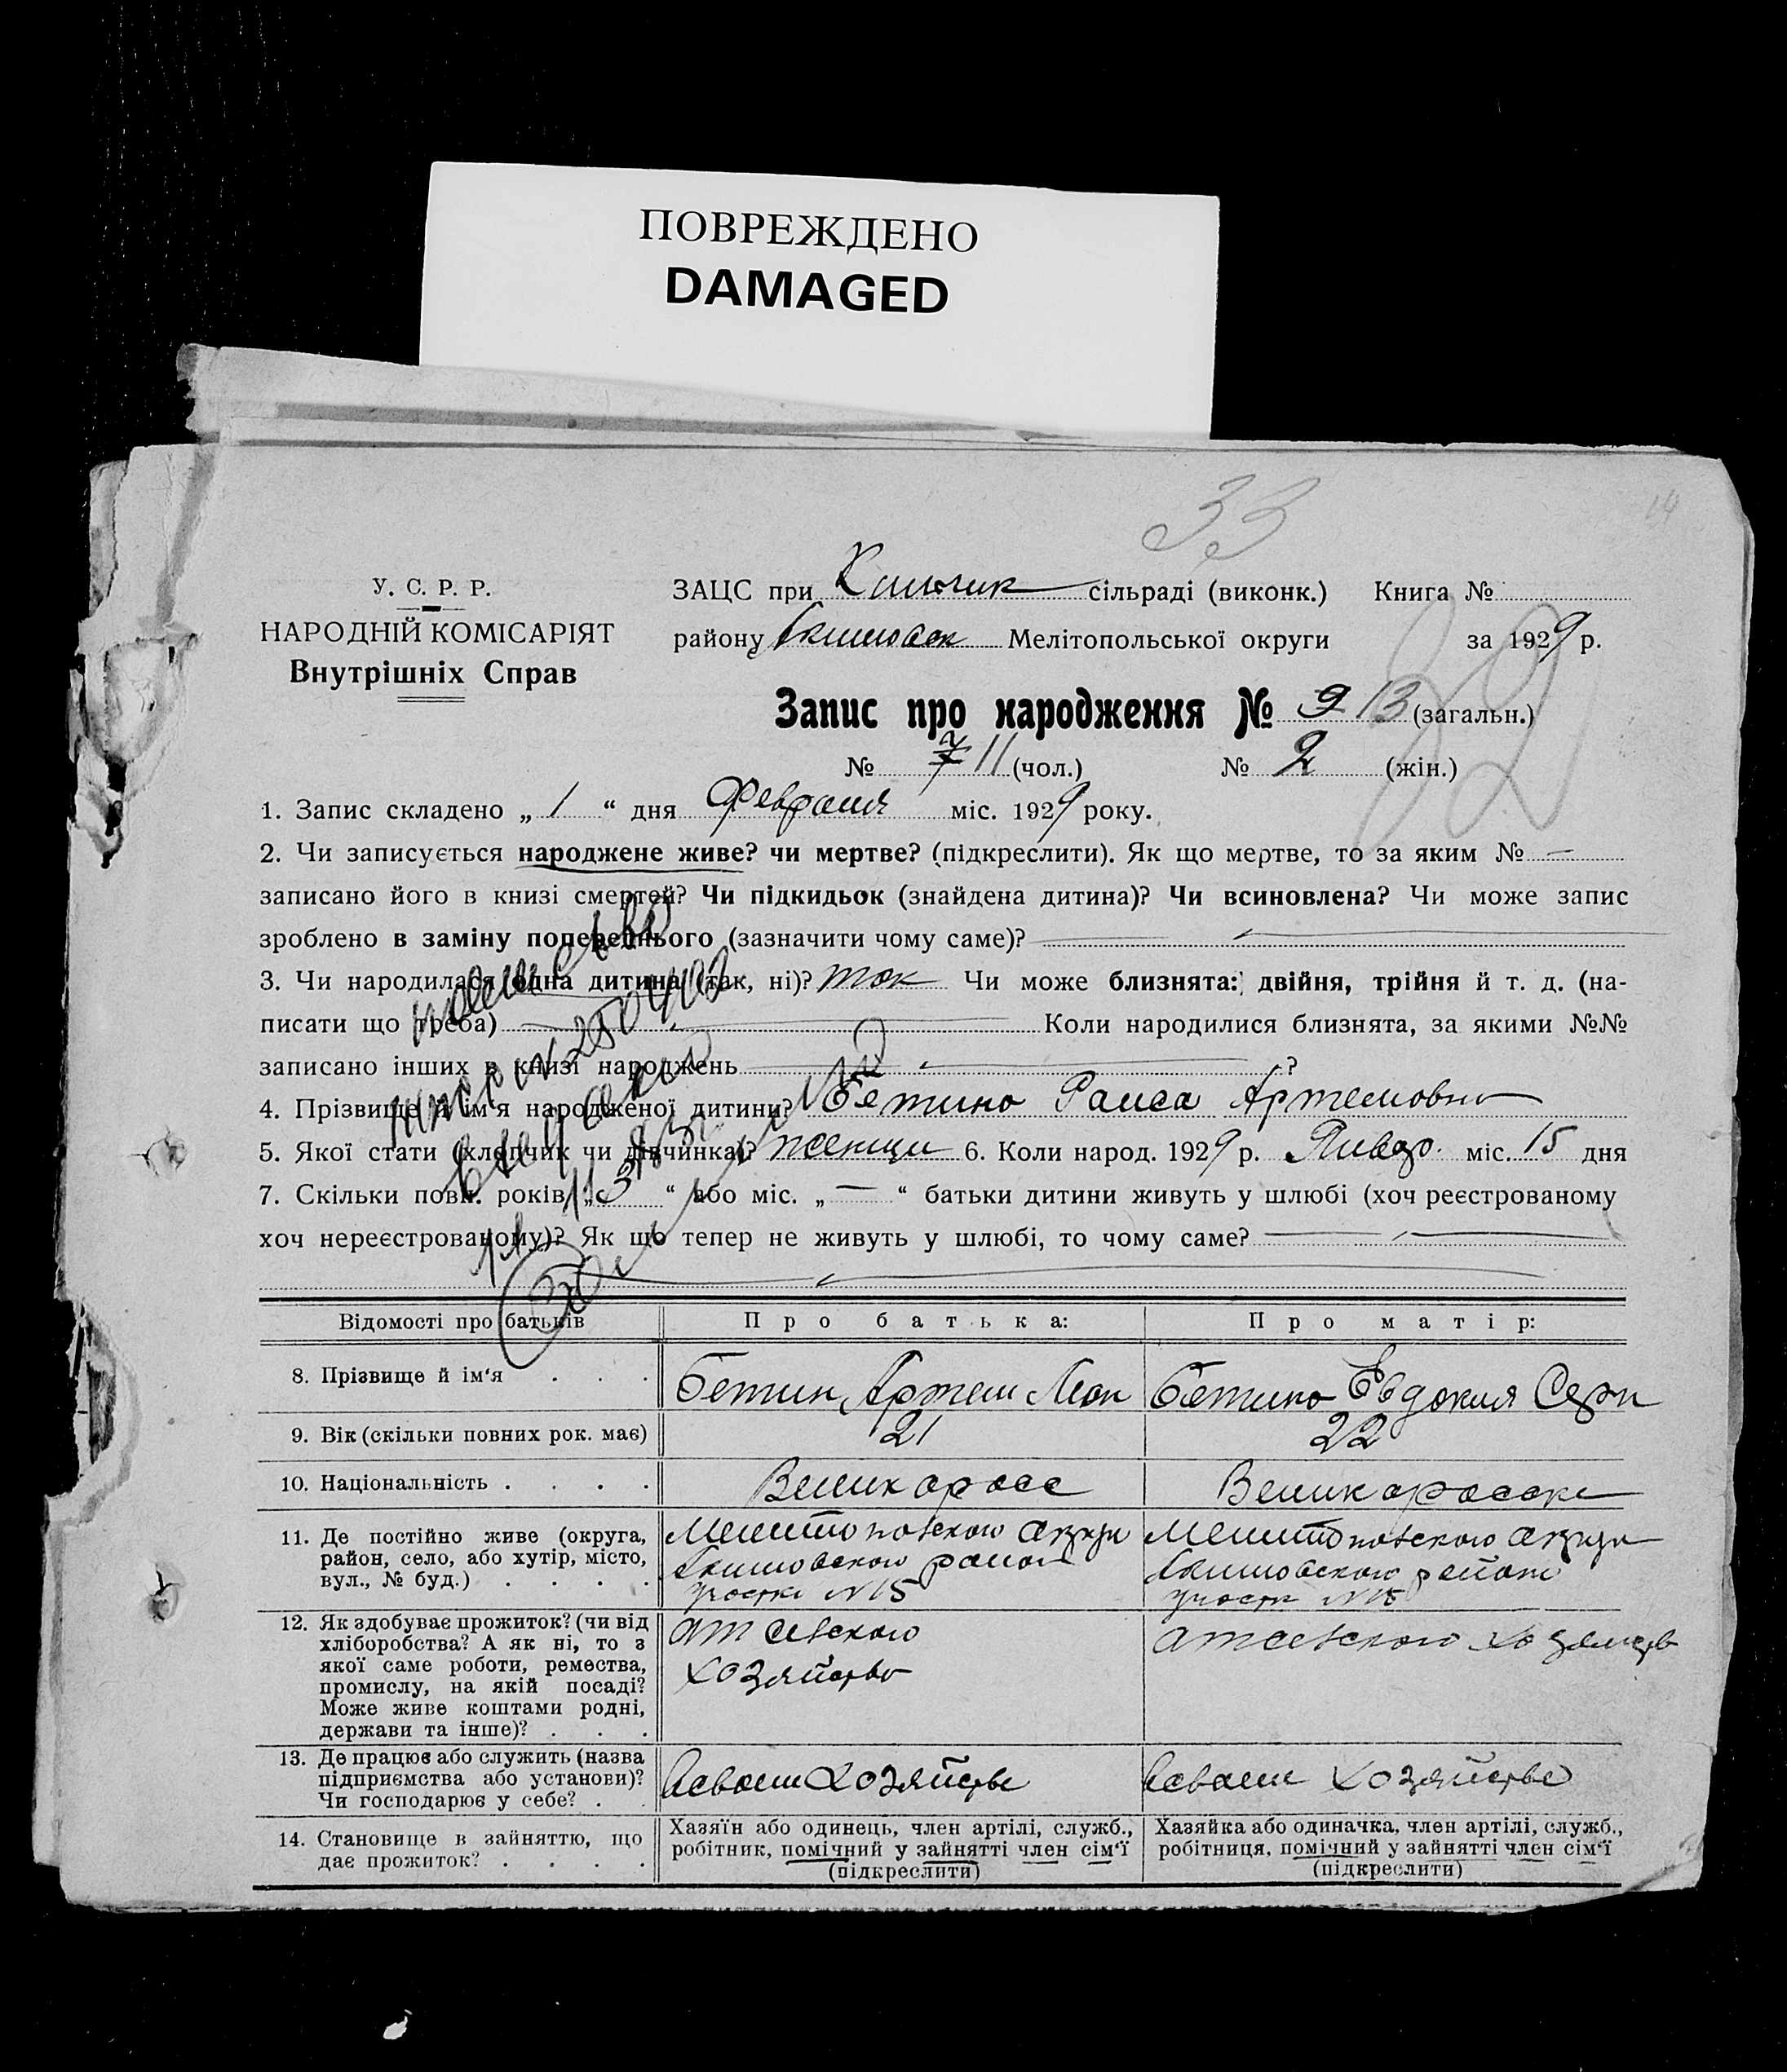 ПОВРЕЖДЕНО
DAMAGED
33
14
У. С. Р. Р.
НАРОДНІЙ КОМІСАРІЯТ
Внутрішніх Справ
ЗАЦС при сільраді (виконк.) Книга №
району Мелітопольської округи за 1929 р.
32
Запис про народження № 9 13 (загальн.)
№ 7 11 (чол.) № 2 (жін.)
1. Запис складено „ 1 “ дня Февраля міс. 1929 року.
2. Чи записується народжене живе? чи мертве? (підкреслити). Як що мертве, то за яким № —
записано його в книзі смертей? Чи підкидьок (знайдена дитина)? Чи всиновлена? Чи може запис
зроблено в заміну попереднього (зазначити чому саме)?
3. Чи народилася одна дитина (так, ні)? так Чи може близнята: двійня, трійня й т. д. (на-
писати що треба) Коли народилися близнята, за якими №№
записано інших в книзі народжень ?
4. Прізвище й ім'я народженої дитини? Бетина Раиса Артемовна
5. Якої стати (хлопчик чи дівчинка)? женщи 6. Коли народ. 1929 р. Январ. міс. 15 дня
7. Скільки повн. років „ 3 “ або міс. „ — “ батьки дитини живуть у шлюбі (хоч реєстрованому
хоч нереєстрованому)? Як що тепер не живуть у шлюбі, то чому саме?
Відомості про батьків Про батька: Про матір:
8. Прізвище й ім'я . . . Бетин Артем Бетина Евдокия
9. Вік (скільки повних рок. має) 21 22
10. Національність . . . . Великоросс Великоросска
11. Де постійно живе (округа,
район, село, або хутір, місто,
вул., № буд.) . . . .
Мелитопольского округа
Акимовского район
участк №15
Мелитопольского округа
Акимовского район
участк №15
12. Як здобуває прожиток? (чи від
хліборобства? А як ні, то з
якої саме роботи, ремества,
промислу, на якій посаді?
Може живе коштами родні,
держави та інше)? . . .
от сельского
хозяйства
от сельского хозяйств
13. Де працює або служить (назва
підприємства або установи)?
Чи господарює у себе? . .
в своем хозяйстве
в своем хозяйстве
14. Становище в зайняттю, що
дає прожиток? . . . .
Хазяїн або одинець, член артілі, служб.,
робітник, помічний у зайнятті член сім'ї
(підкреслити)
Хазяйка або одиначка, член артілі, служб.,
робітниця, помічний у зайнятті член сім'ї
(підкреслити)